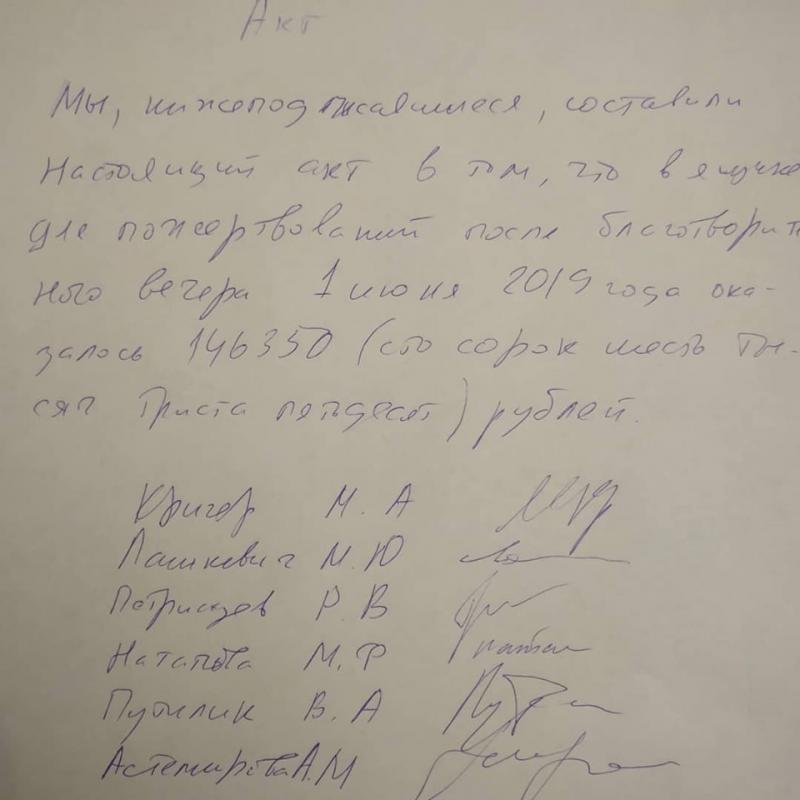 Акт
Мы, нижеподписавшиеся, составили
настоящий акт в том, что в ящике
для пожертвований после благотворит
ного вечера 1 июня 2019 года ока-
залось 146350 (сто сорок шесть ты-
сяч триста пятьдесят) рублей.
Кригер М. А
Лашкевич М. Ю
Петрищев Р. В
Натапова М. Ф
Путилик В. А
Астемирова А. М